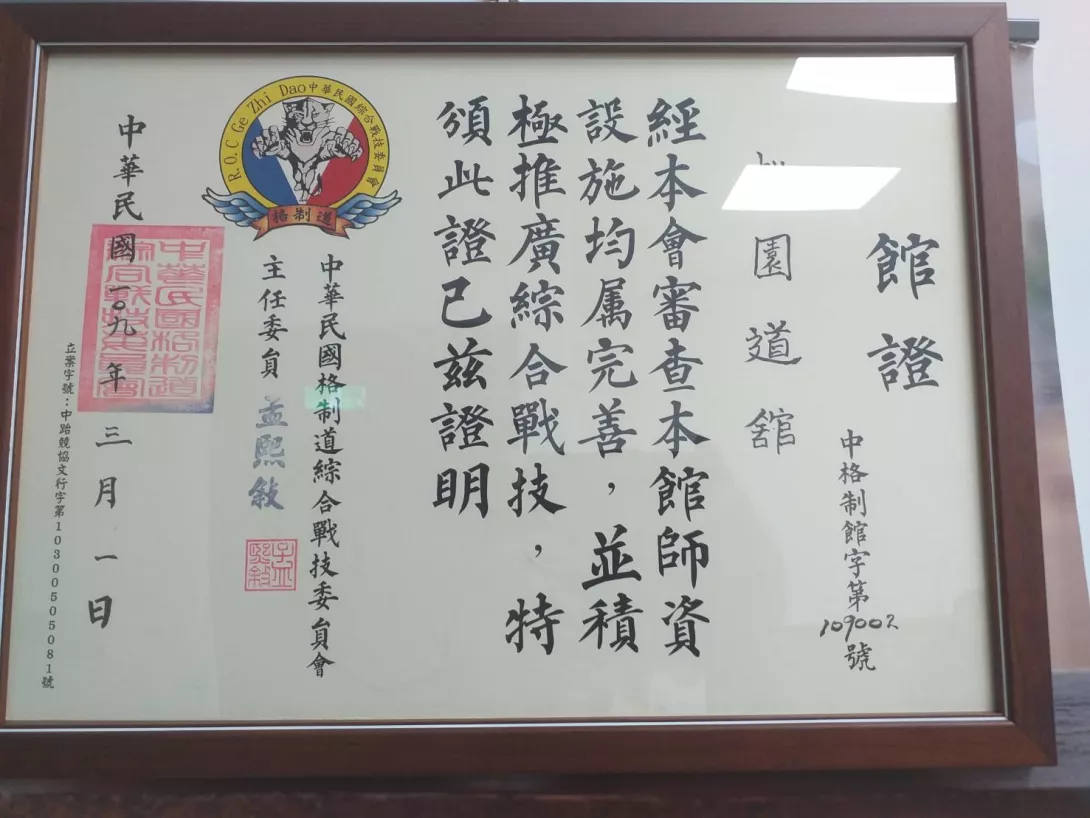 館證
中格制館字第109002號
園道館
經本會審查本館師資
設施均属完善，並積
極推廣綜合戰技，特
頒此證已茲證明
R.O.C Ge Zhi Dao中華民國綜合戰技委員會
格制道
中華民國格制道綜合戰技委員會
主任委員 孟熙敘
中華民國一〇九年三月一日
立案字號：中跆競協文行字第1030050508１號